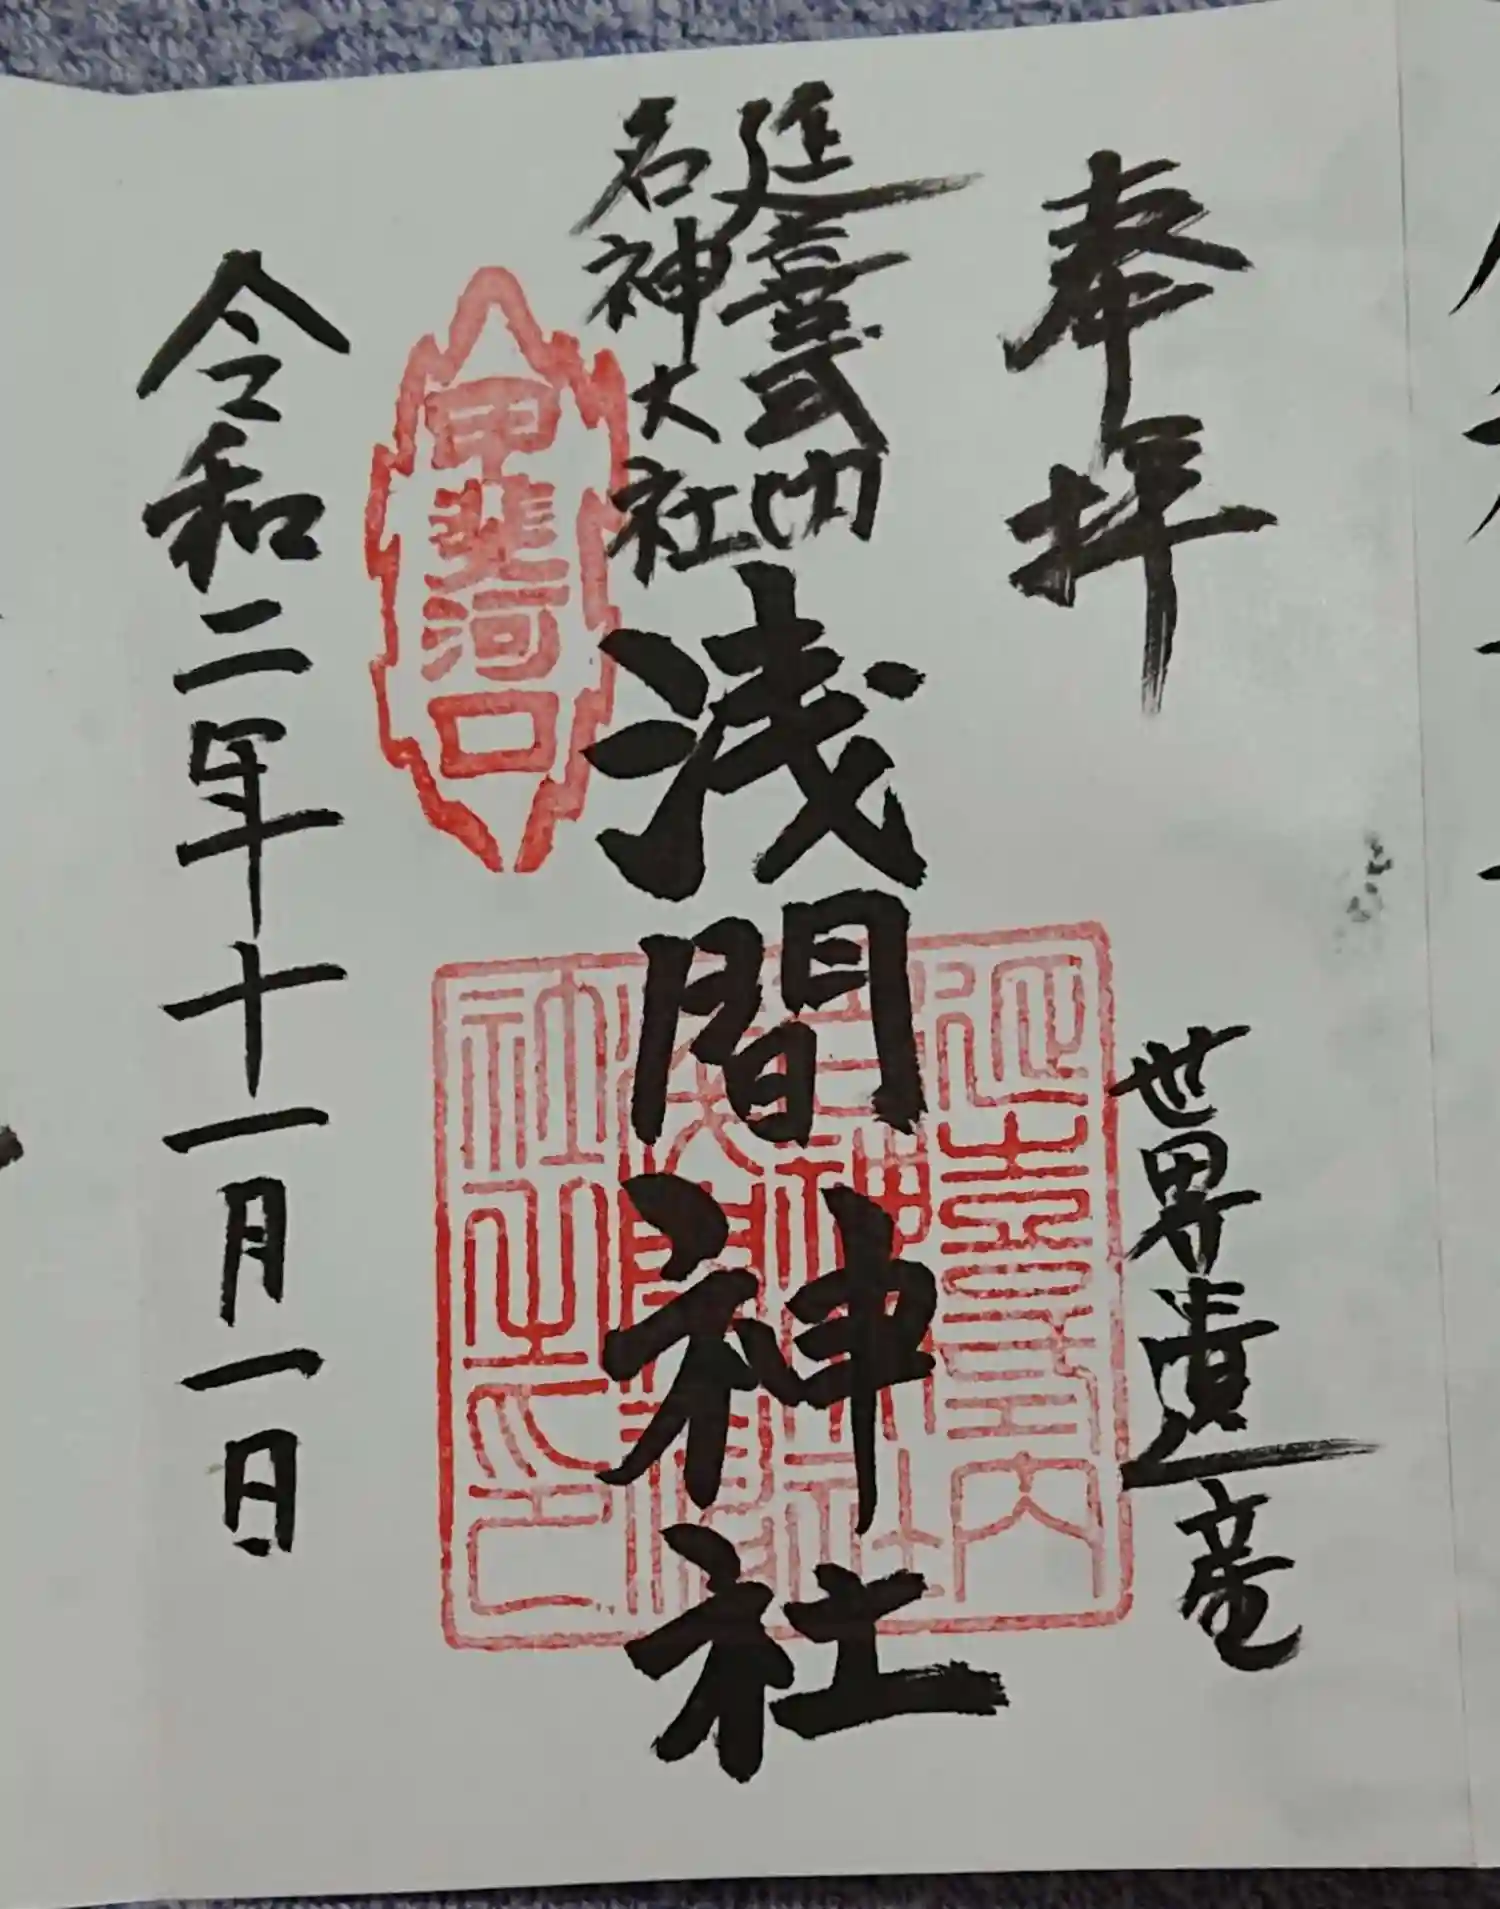 奉拝
世界遺産
延喜式内
名神大社
浅間神社
甲斐河口
令和二年十一月一日